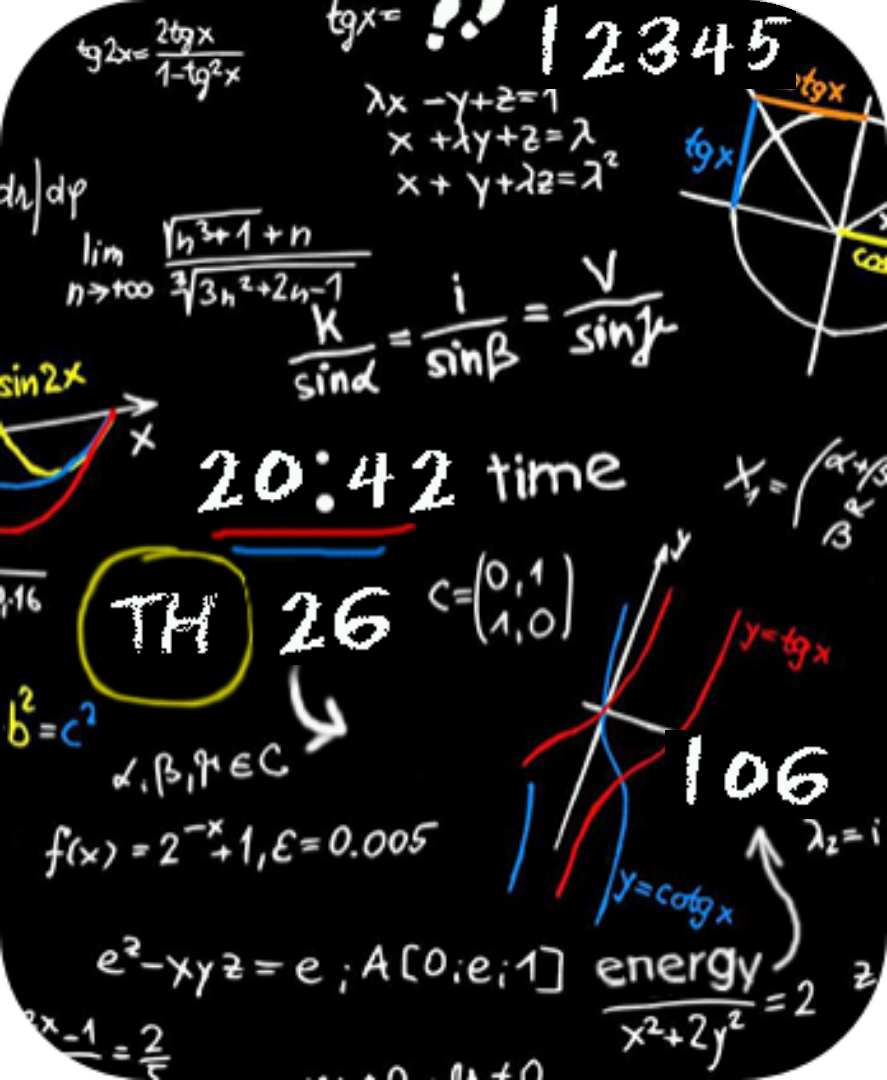 tg2x= 2tgx / 1-tg²x
tgx=
12345
λx -y+z=1
x +λy+z=λ
x + y+λz=λ²
tgx
tgx
cos
dφ
lim n→+∞ √n³+1+n / ∛3n²+2n-1
k/sinα = i/sinβ = v/sinγ
sin2x
x
20:42 time
X₁=(α+β
α
β
.16
TH 26
C=(0,1
1,0)
y
y=tgx
b²=c²
α,β,γ∈C
106
f(x)=2⁻ˣ+1,ε=0.005
λ₂=i
y=cotgx
e²-xyz=e;A[0;e;1]
energy
x²+2y² =2
z
x-1 = 2/5